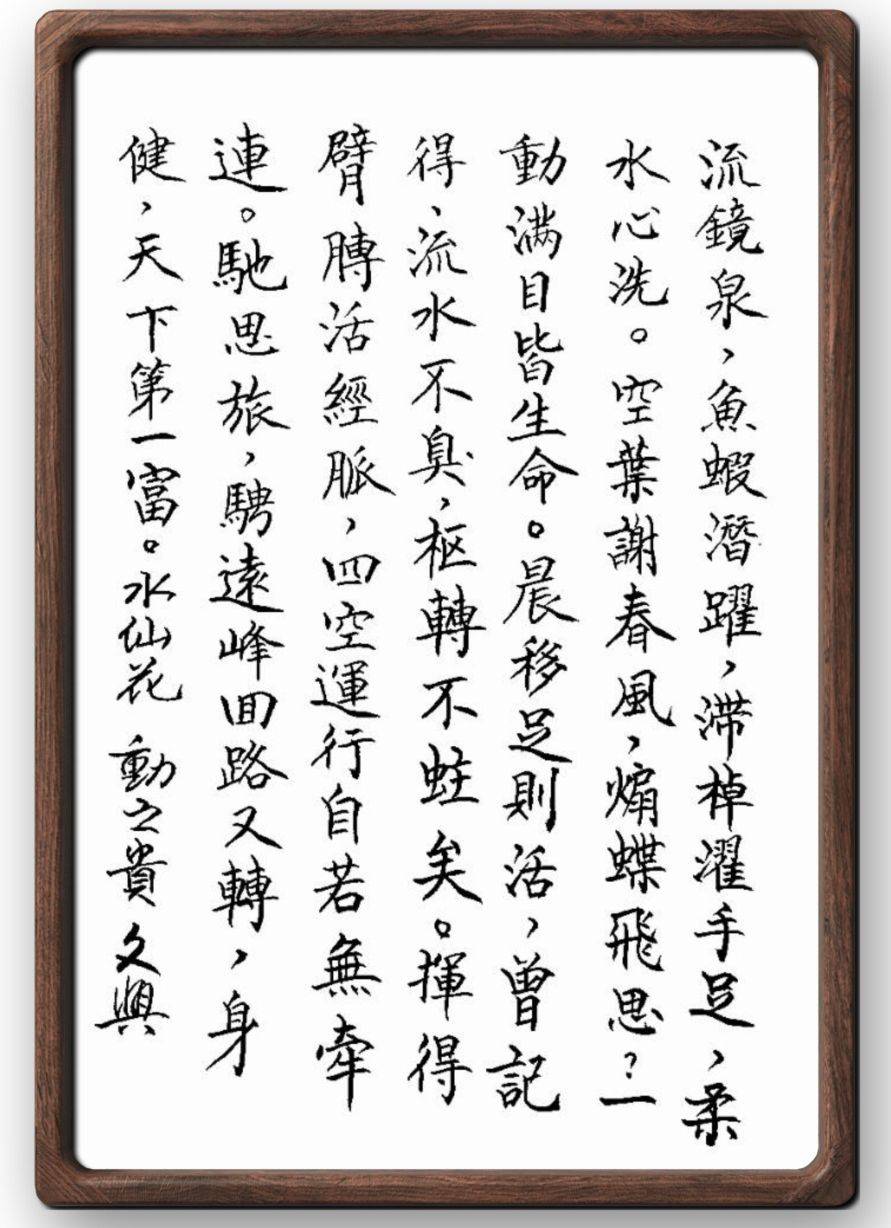 流鏡泉，魚蝦潛躍，滯棹濯手足，柔
水心洗。空葉謝春風，煽蝶飛思？一
動滿目皆生命。晨移足則活，曾記
得、流水不臭，枢轉不蛀矣。揮得
臂膊活經脈，四空運行自若無牽
連。馳思旅，騁遠峰回路又轉，身
健，天下第一富。水仙花 動之貴 文興